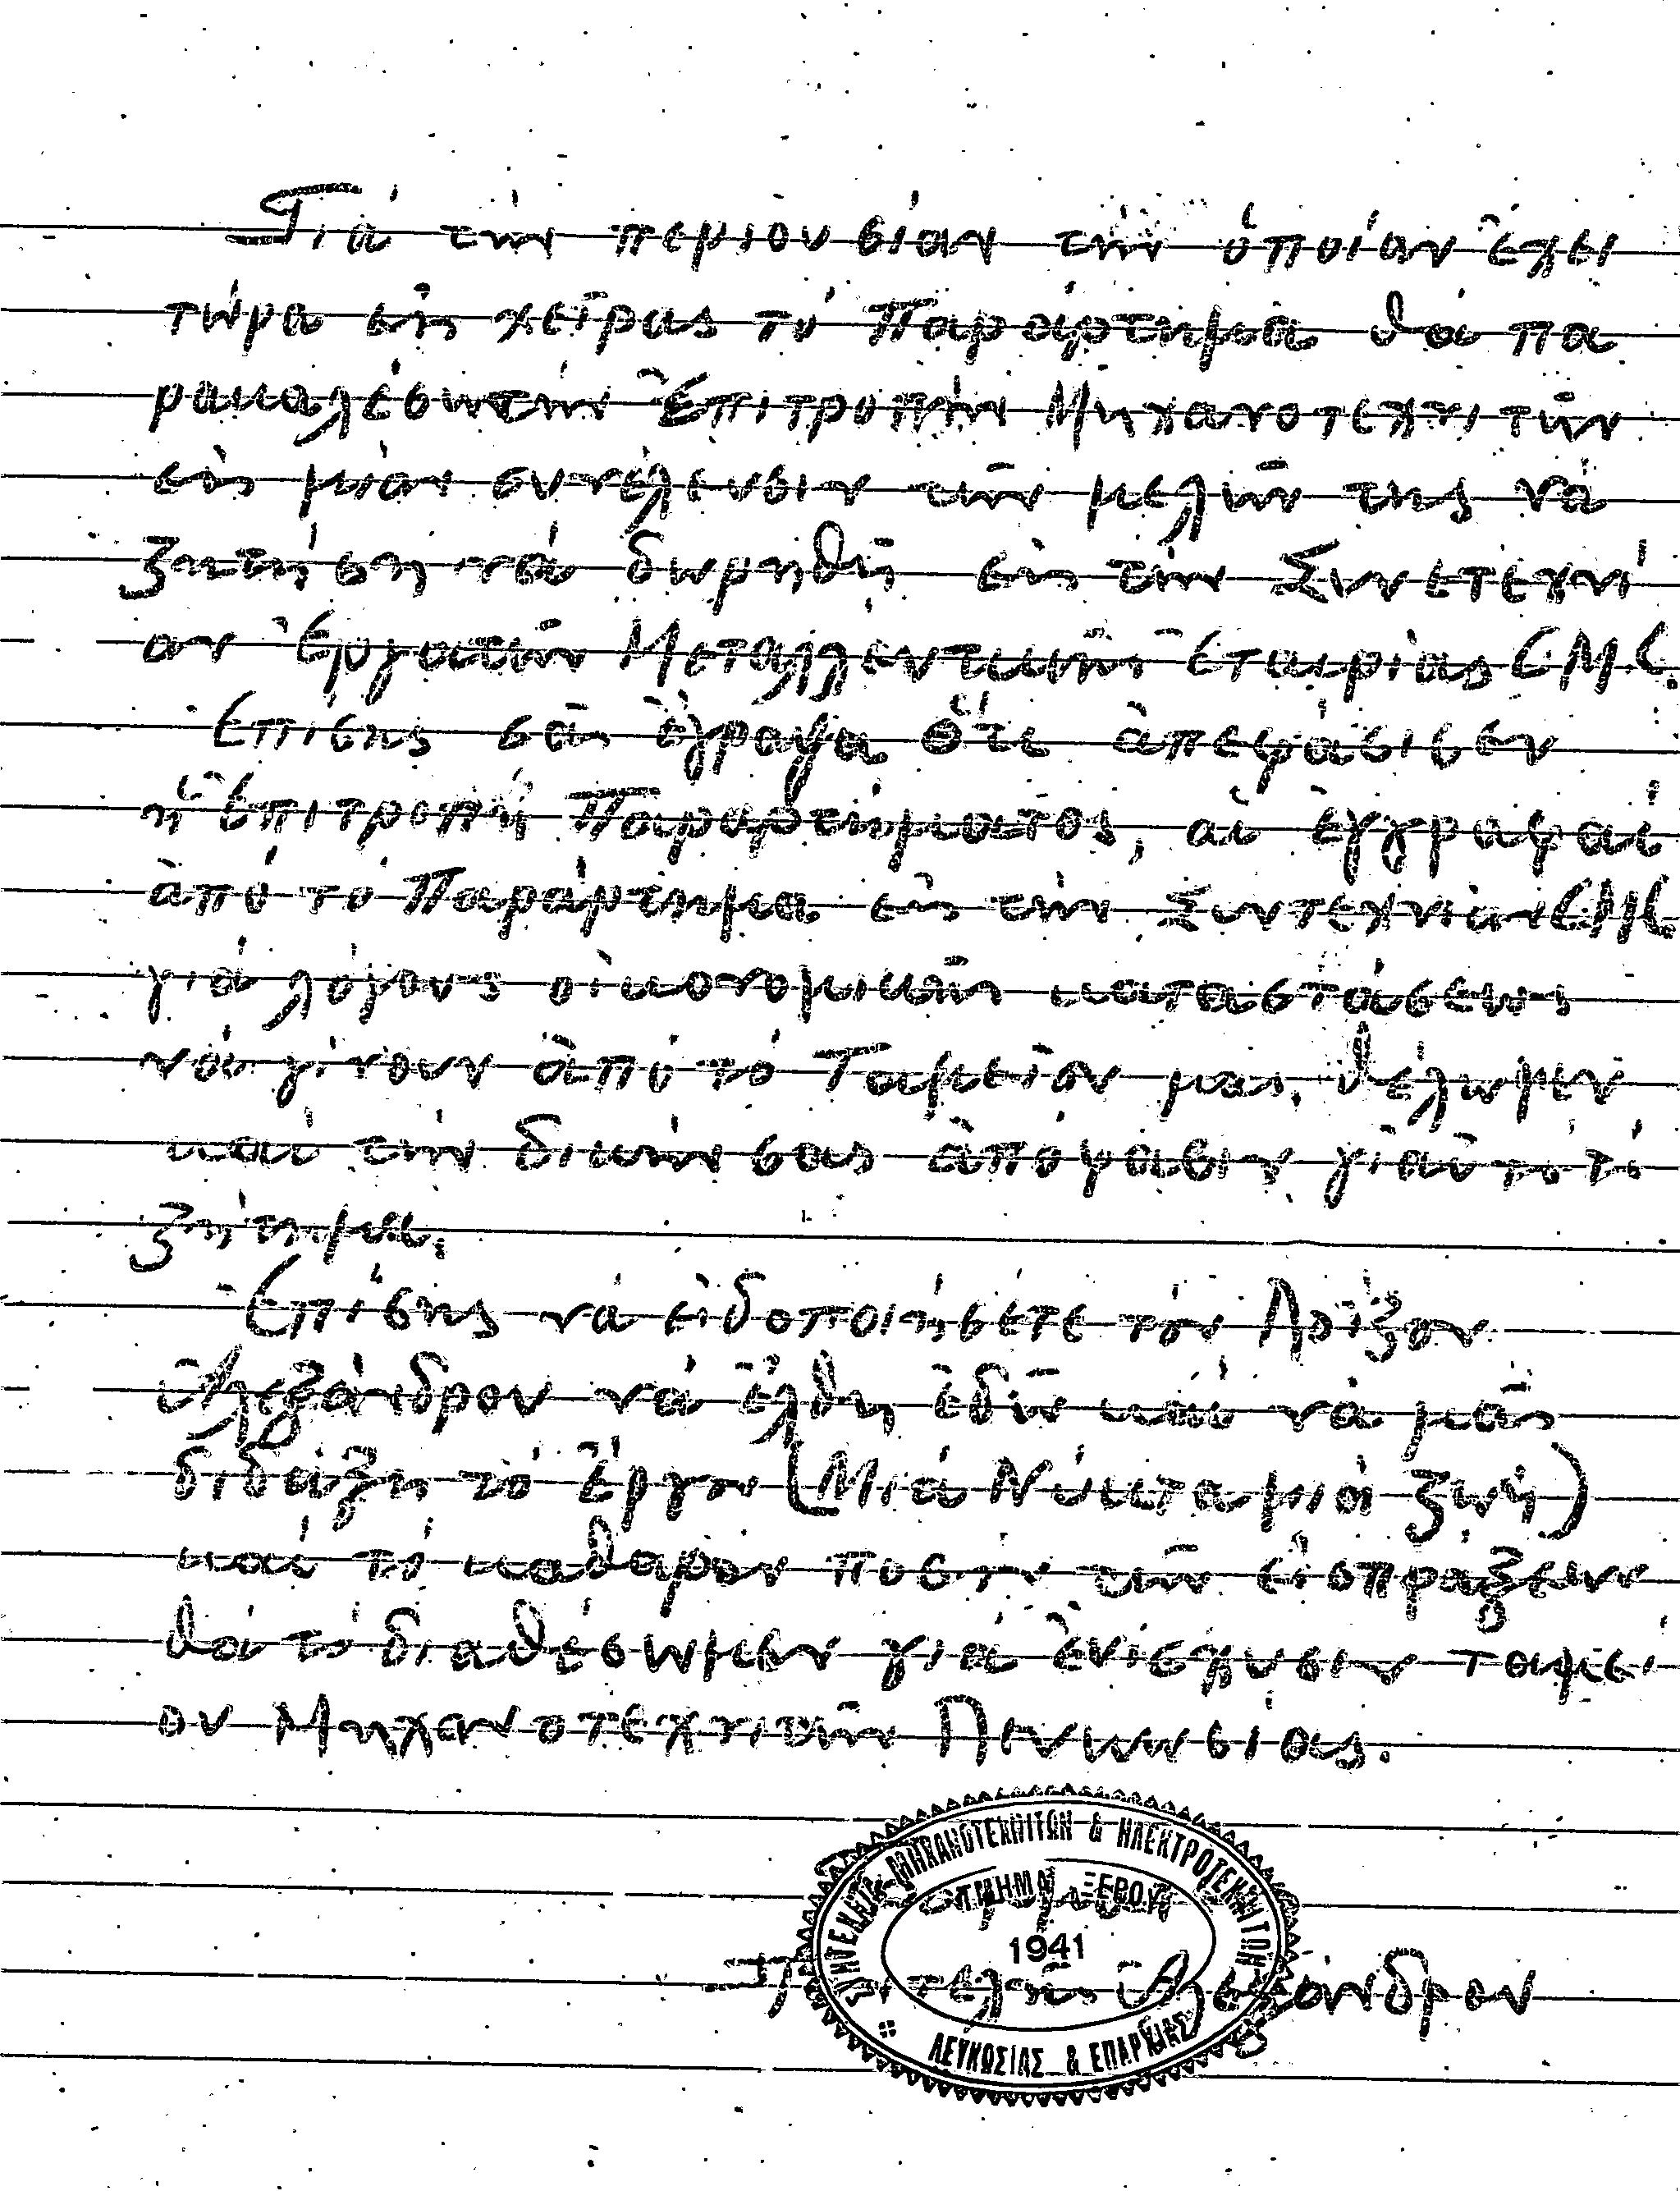 Γιά τήν περιουσίαν τήν ὁποίαν ἔχει
τώρα εἰς χεῖρας τό Παράρτημα θά πα
ρακαλέσω τήν Ἐπιτροπήν Μηχανοτεχνιτῶν
εἰς μίαν συνέλευσιν τῶν μελῶν της νά
ζητήση νά δωρηθῆ εἰς τήν Συνετεχνί
αν Ἐργατῶν Μεταλλευτικῆς Ἑταιρίας C.M.C.
Ἐπίσης σᾶς ἔγραψα ὅτι ἀπεφάσισεν
ἡ Ἐπιτροπή Παραρτήματος, αἱ ἐγγραφαί
ἀπό τό Παράρτημα εἰς τήν Συντεχνίαν C.M.C.
γιά λόγους οἰκονομικῆς καταστάσεως
νά γίνουν ἀπό τό Ταμεῖον μας. θέλωμεν
καί τήν δικήν σας ἀπόφασιν γιαὐτό τό
ζήτημα.
Ἐπίσης νά εἰδοποιήσετε τόν Λοΐζον
Ἀλεξάνδρου νά ἔλθη ἐδῶ καί νά μᾶς
διδάξη τό ἔργον (Μιά Νύκτα μιά ζωή)
καί τό καθαρόν ποσόν τῶν εἰσπράξεων
θά τό διαθέσωμεν γιά ἐνίσχυσιν ταμεί
ου Μηχανοτεχνιτῶν Λευκωσίας.
ΣΥΝΤΕΧΝΙΑ ΜΗΧΑΝΟΤΕΧΝΙΤΩΝ & ΗΛΕΚΤΡΟΤΕΧΝΙΤΩΝ
ΤΜΗΜΑ ΞΕΡΟΥ
1941
Ἀλεξάνδρου
ΛΕΥΚΩΣΙΑΣ & ΕΠΑΡΧΙΑΣ